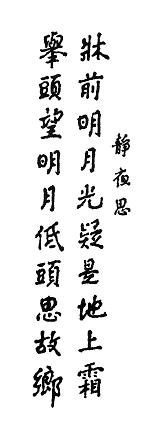 靜夜思
牀前明月光疑是地上霜
舉頭望明月低頭思故鄉